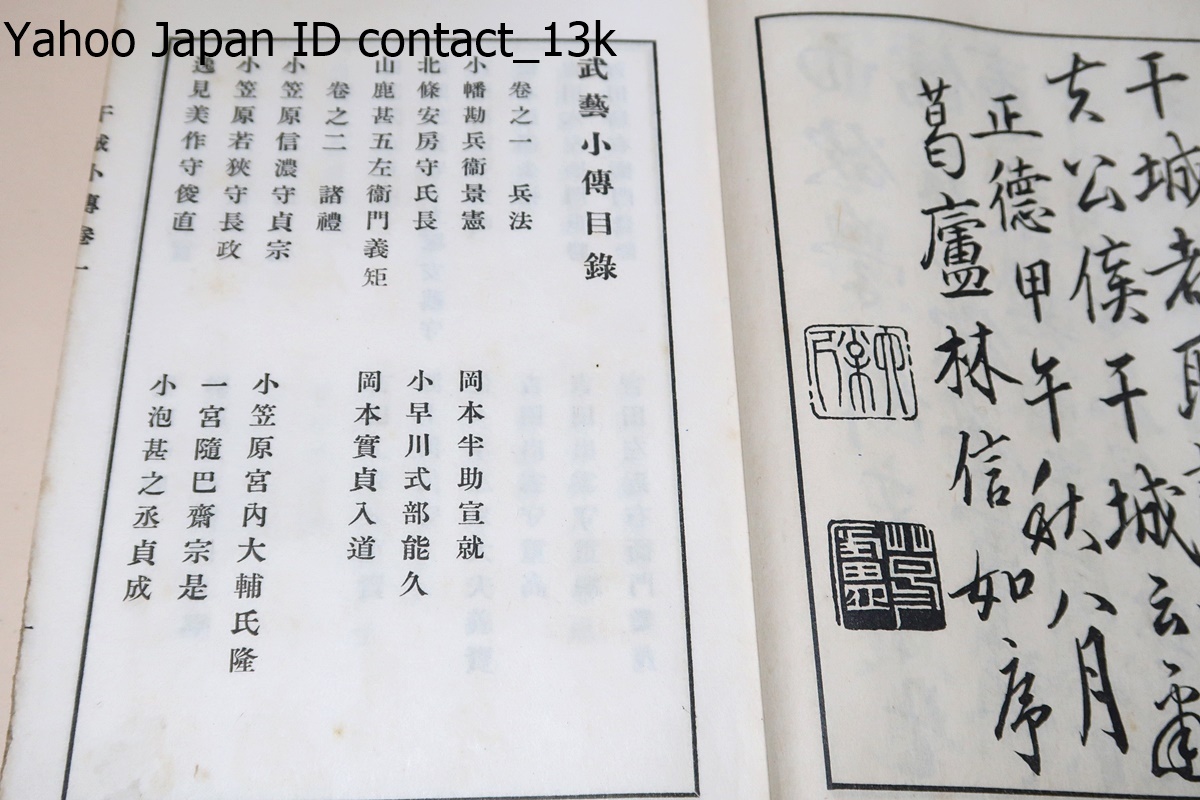 Yahoo Japan ID contact_13k
干城者
夫公侯干城云爾
正德甲午秋八月
葛廬林信如序
武藝小傳目錄
卷之一 兵法
小幡勘兵衞景憲
岡本半助宣就
北條安房守氏長
小早川式部能久
山鹿甚五左衞門義矩
岡本實貞入道
卷之二 諸禮
小笠原信濃守貞宗
小笠原宮內大輔氏隆
小笠原若狹守長政
一宮隨巴齋宗是
逸見美作守俊直
小池甚之丞貞成
干城小傳卷一